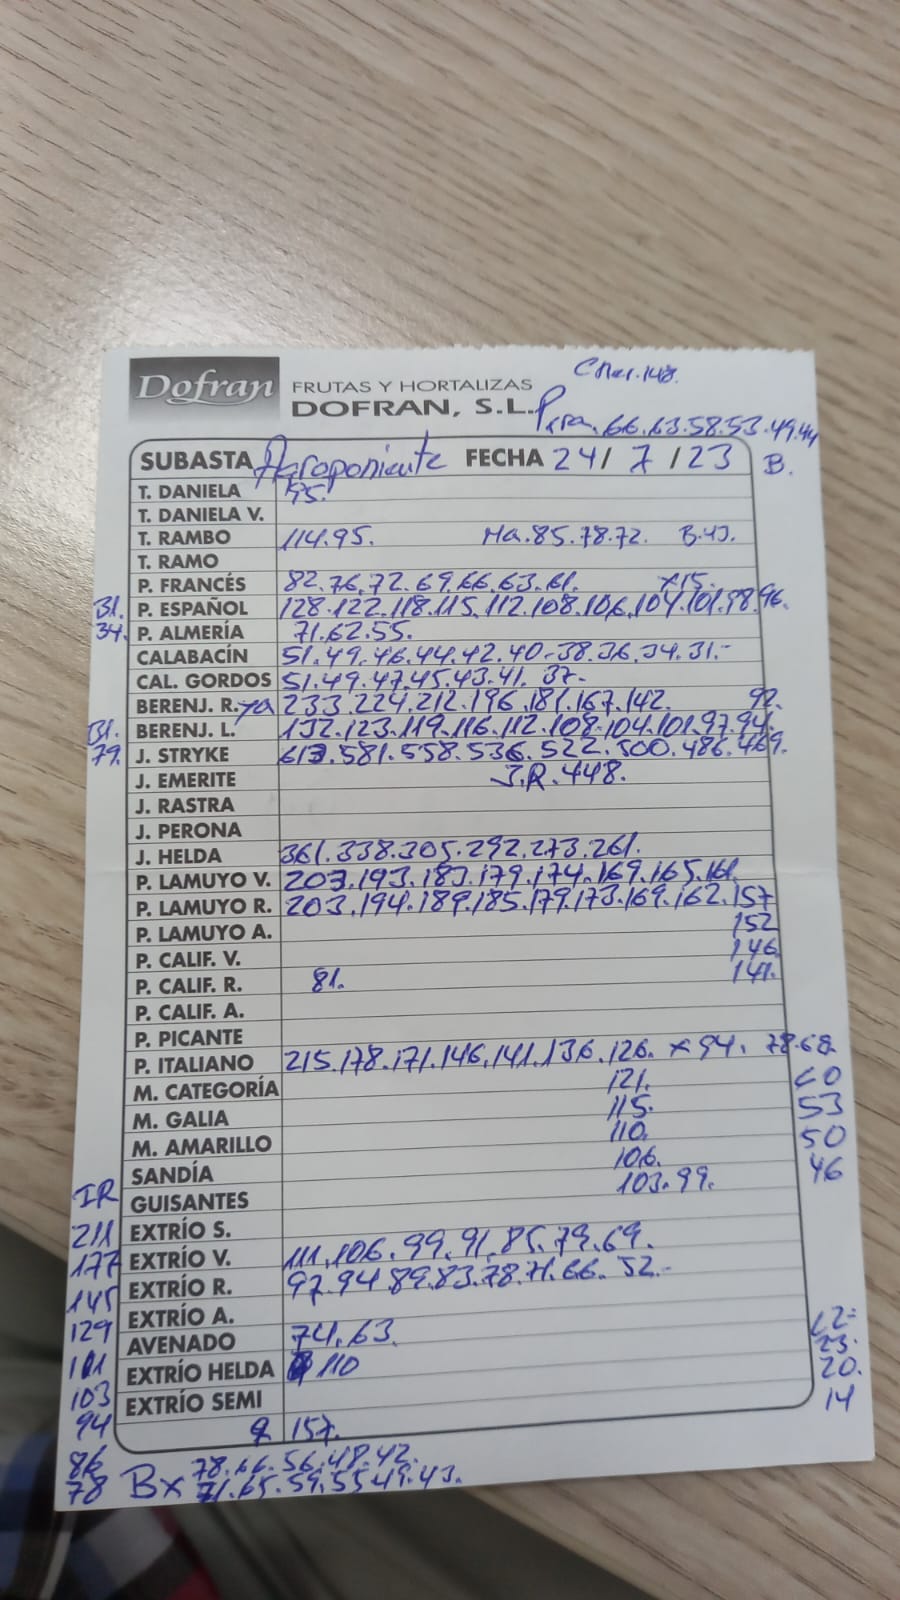 Dofran FRUTAS Y HORTALIZAS
DOFRAN, S.L.
148.
66.63.58.53.49.44
SUBASTA Agroponiente FECHA 24/7/23 B.
T. DANIELA 95.
T. DANIELA V.
T. RAMBO 114.95. Ma.85.78.72.
T. RAMO
P. FRANCÉS 82.76.72.69.66.63.61. x15.
31. P. ESPAÑOL 128.122.118.115.112.108.106.104.101.98.96.
34. P. ALMERÍA 71.62.55.
CALABACÍN 51.49.46.44.42.40-38.36.34.31.-
CAL. GORDOS 51.49.47.45.43.41. 37.-
BERENJ. R. 233.224.212.196.181.167.142. 92.
BERENJ. L. 132.123.119.116.112.108.104.101.97.94.
79. J. STRYKE 581.558.536.522.500.486.469.
J. EMERITE J.R.448.
J. RASTRA
J. PERONA
J. HELDA 361.338.305.292.273.261.
P. LAMUYO V. 203.193.183.179.174.169.165.161.
P. LAMUYO R. 203.194.189.185.179.173.169.162.157
P. LAMUYO A. 152
P. CALIF. V. 146
P. CALIF. R. 81. 141.
P. CALIF. A.
P. PICANTE
P. ITALIANO 215.178.171.146.141.136.126. x 94. 78.68.
M. CATEGORÍA 121. 60
M. GALIA 115. 53
M. AMARILLO 110. 50
SANDÍA 106. 46
IR GUISANTES 103.99.
211 EXTRÍO S.
177 EXTRÍO V. 111.106.99.91.85.79.69.
145 EXTRÍO R. 97.94.89.83.78.71.66. 52.-
129 EXTRÍO A.
AVENADO 74.63. 23.
111 EXTRÍO HELDA 110 20.
103 EXTRÍO SEMI 14
94 157.
86 78.66.56.49.42.
78 Bx 71.65.59.55.49.43.